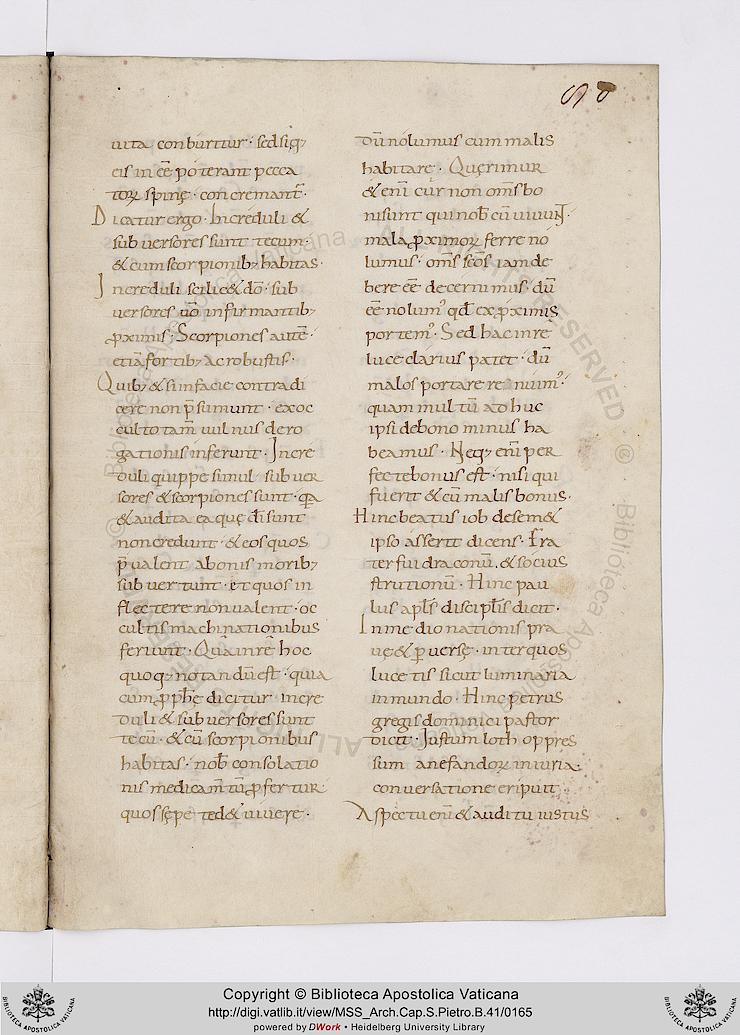 uita conburitur · sed siq;
eis in cē poterant pecca
torꝝ spinę · concremant̄ ·
Dicatur ergo · Increduli &
subuersores sunt tecum ·
& cum scorpionib; habitas ·
Increduli scilic& dō · sub
uersores ūo infirmantib;
ꝓximis ; Scorpiones autē ·
etiā fortib; ac robustis ·
Quib; & si in facie contradi
cere non p̄sumunt · ex oc
culto tam̄ uulnus dero
gationis inferunt · Incre
duli quippe simul subuer
sores & scorpiones sunt · qa
& audita ea quę dī sunt
non credunt · & eos quos
p̄ualent a bonis morib;
subuertunt · et quos in
flectere non ualent · oc
cultis machinationibus
feriunt · Qua in rē hoc
quoq; notandū est · quia
cum ꝓph&ę dicitur · incre
duli & subuersores sunt
tecū · & cū scorpionibus
habitas · nob̄ consolatio
nis medicam̄tū ꝓfertur
quos sępe tęd& uiuere ·
dū nolumus cum malis
habitare · Quęrimur
& enī cur non om̄s bo
ni sunt qui nob̄ cū uiuunt̄ ·
mala ꝓximorꝝ ferre no
lumus · om̄s sc̄os iam de
bere eē decernimus · dū
eē nolum᾽ qd̄ ex ꝓximis
portem᾽ · Sed hac in re
luce clarius patet · dū
malos portare renuim᾽ ·
quam multū adhuc
ipsi de bono minus ha
beamus · Neq; enī per
fecte bonus est · nisi qui
fuerit & cū malis bonus ·
Hinc beatus iob de sem&
ipso asserit dicens · Fra
ter fui draconū · & socius
strutionū · Hinc pau
lus apl̄s discipl̄is dicit ·
In medio nationis pra
uę & ꝑuersę · inter quos
lucetis sicut luminaria
in mundo · Hinc petrus
gregis dominici pastor
dicit · Iustum loth oppres
sum a nefandorꝝ iniuria
conuersatione eripuit
Aspectu enī & auditu iustus